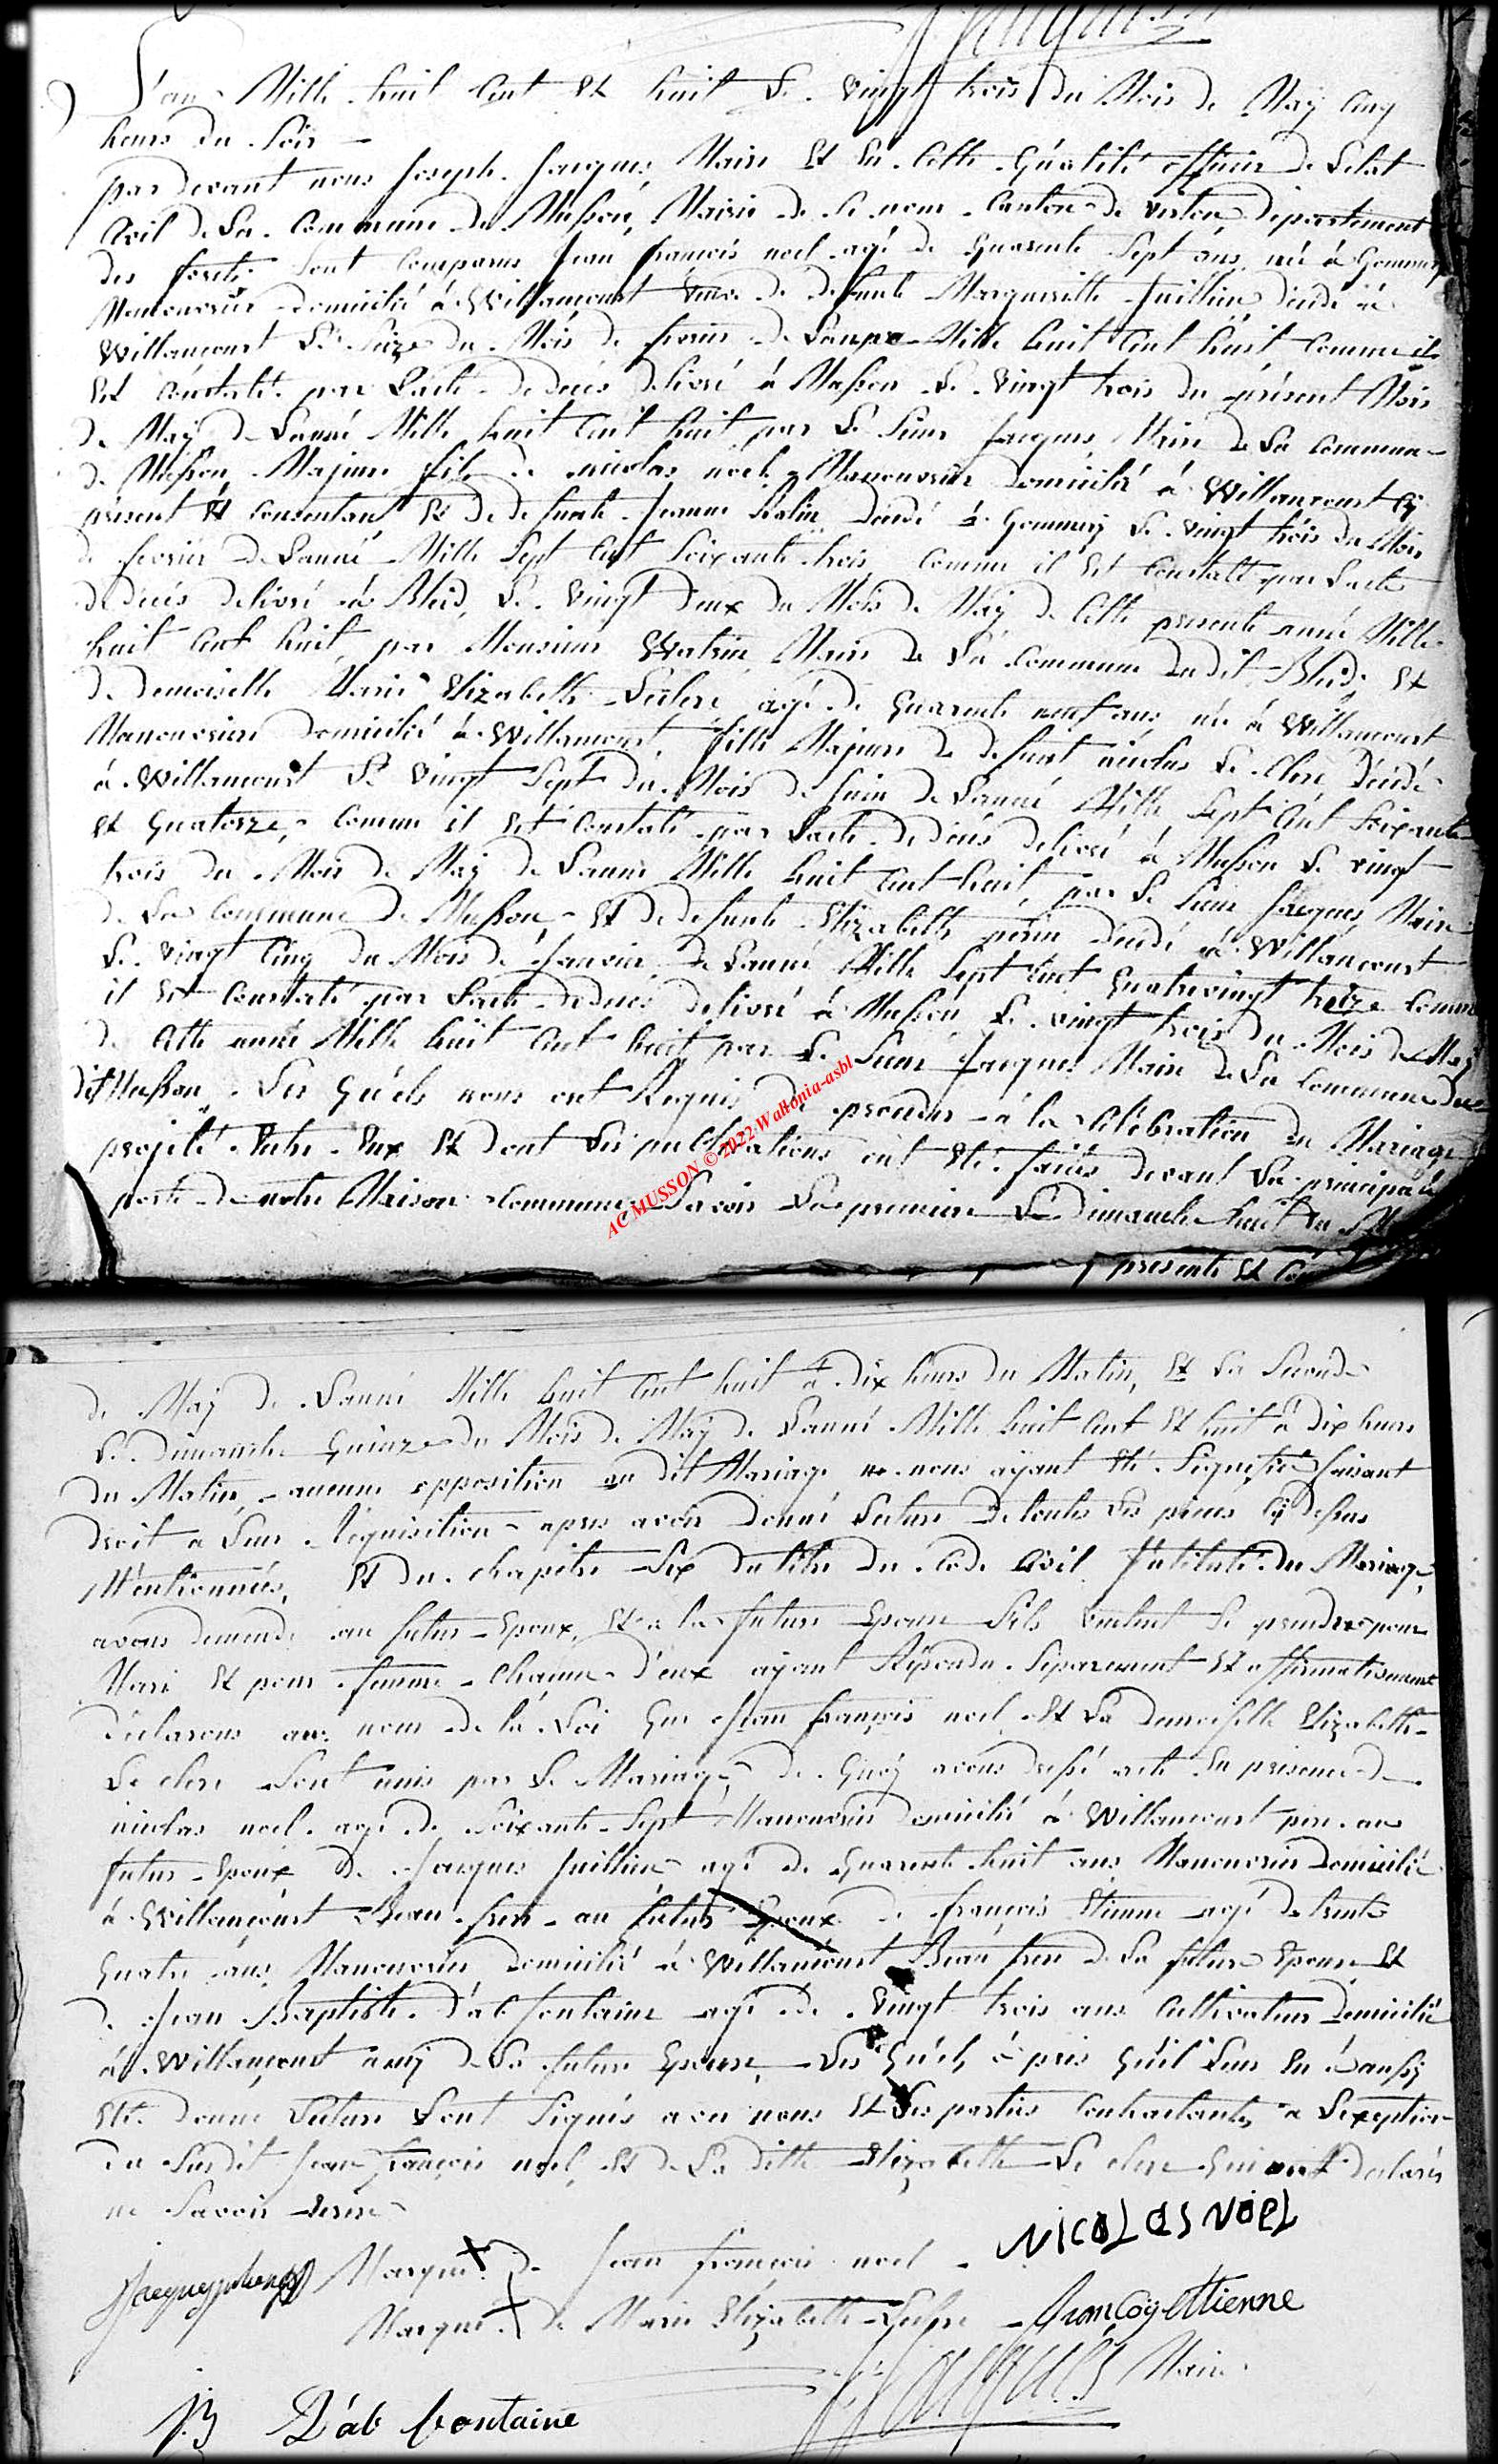 L'an Mille huit Cent et huit Le vingt trois du Mois de Maÿ Cinq
heures du Soir
par devant nous Joseph Jacques, Maire Et En Cette Qualité officier de L'Etat
Civil de La Commune de Musson, Mairie de Ce nom Canton de virton département
des forets Sont Comparus Jean françois noel agé de Quarente Sept ans, né à Gommery
Manouvrier domicilié à Willancourt veuf de defunte Marguerite Juillin, décédé à
Willancourt Le Seize du Mois de de L'anné Mille huit Cent huit Comme il
Est Constaté par L'acte de décès délivré à Musson Le vingt trois du présent Mois
de Maÿ de L'anné Mille huit Cent huit par Le Sieur Jacques Maire de La Commune
de Musson Majeur fils de nicolas noel Manouvrier Domicilié à Willancourt Cy
présent Et Consentant Et de defunte Jeanne décédé à Gommery Le vingt trois du Mois
de fevrier de L'anné Mille Sept Cent Soixante trois, Comme il Est Constatt par L'acte
de décès délivré à Bleid, Le vingt deux du Mois de Maÿ de Cette presente anné Mille
huit Cent huit, par Monsieur Watrin, Maire de La Commune du dit Bleid, Et
de demoiselle Marie Elizabeth Leclere agé de Quarente neuf ans, née à Willancourt
Manouvriere domicilié à Willancourt, fille Majeure de defunt nicolas Le Clere, décédé
à Willancourt Le vingt Sept du Mois de Juin de L'anné Mille Sept Cent Soixante
et Quatorze, Comme il Est Constaté par L'acte de décès délivré à Musson Le vingt
trois du Mois de Maÿ de L'anné Mille huit Cent huit, par Le Sieur Jacques, Maire
de La Commune de Musson, Et de defunte Elizabeth décédé à Willancourt
Le vingt Cinq du Mois de Janvier, de L'anné Mille Sept Cent Quatrevingt treize Comme
il Est Constaté par L'acte de décès délivré à Musson, Le vingt trois du Mois de Maÿ
de Cette anné Mille huit Cent huit par Le Sieur Jacques Maire de La Commune du
dit Musson. Les Quels nous ont Requis de proceder à la Célébration du Mariage
projeté Entre Eux Et dont Les publications ont Eté faites devant La principale
porte de notre Maison Commune, Savoir La premiere Le Dimanche huit du
presente Et
AC MUSSON © 2022 Wallonia-asbl
de Maÿ de L'anné Mille huit Cent huit à dix heures du Matin, Et La Seconde
Le Dimanche Quinze du Mois de Maÿ de L'anné Mille huit Cent Et huit à dix heures
du Matin, aucune opposition au dit Mariage ne nous aÿant Eté Signifiée faisant
droit a Leur Réquisition après avoir Donné Lecture de toutes Les pièces Cy dessus
Mentionnées, Et du chapitre Six du titre du Code Civil Intitulé du Mariage,
avons demendé au futur Epoux, Et a la future Epouse S'ils veulent Se prendre pour
Mari Et pour femme Chacune d'eux aÿant Répondu Séparement Et affirmativement
déclarons au nom de la Loi Que Jean françois noel Et La demoiselle Elizabette
Le clere Sont unis par Le Mariage, de Quoÿ avons dressé acte En présence de
nicolas noel agé de Soixante Sept Manouvrier Domicilié à Willancourt pere au
futur Epoux de Jacques Juillien agé de Quarente huit ans Manouvrier Domicilié
à Willancourt Beau frere au futur Epoux de françois Etienne agé de trente
Quatre ans, Manouvrier Domicilié à Willancourt Beau frere de La future Epouse Et
de Jean Baptiste d'ab fontaine agé de vingt trois ans Cultivateur Domicilié
à Willancourt amÿ de La future Epouse, Les Quels à près Qu'il Leur En à aussy
Eté donné Lecture Sont Signés avec nous Et Les parties Contractantes a L'exeption
du Susdit Jean françois noel, Et de La ditte Elizabette Le clere Qui ont déclarés
ne Savoir Ecrire
Marque de Jean françois noel NICOLAS NOEL
Marque de Marie Elizabette Leclere françoy Ettienne
Jacques Maire
JB D'ab fontaine